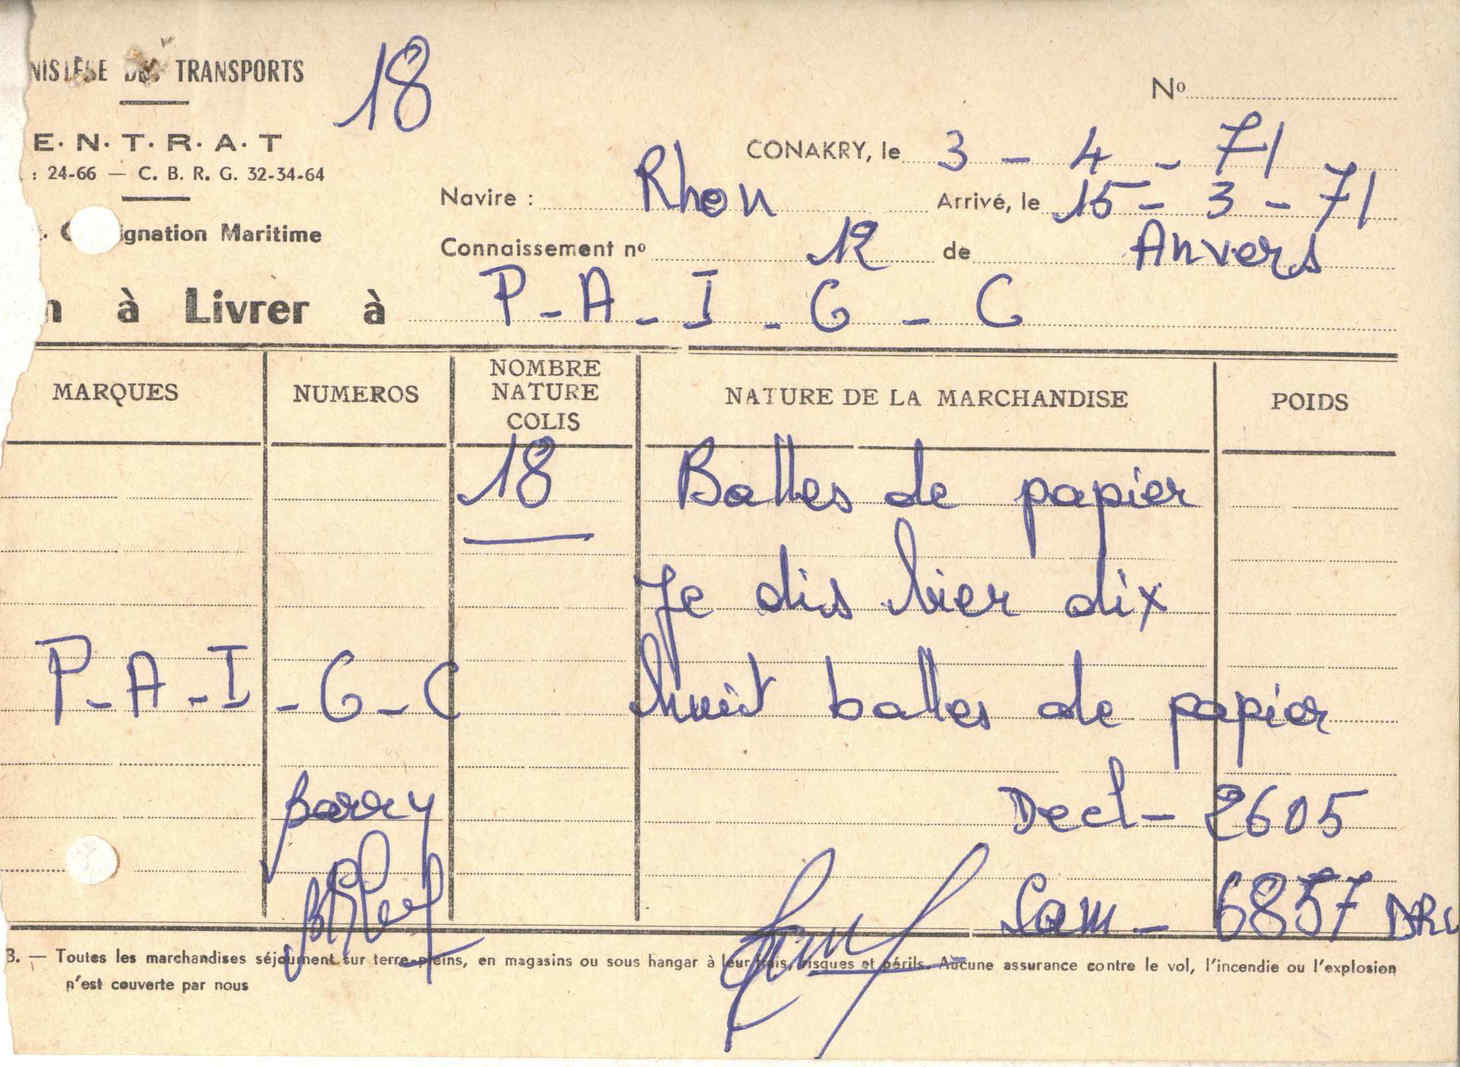 NISTÈRE DES TRANSPORTS
18
Nº
E. N. T. R. A. T
: 24-66 — C. B. R. G. 32-34-64
CONAKRY, le 3 - 4 - 71
Navire : Rhon Arrivé, le 15 - 3 - 71
ignation Maritime
Connaissement nº 12 de Anvers
n à Livrer à P - A - I - G - C
MARQUES NUMEROS NOMBRE NATURE COLIS NATURE DE LA MARCHANDISE POIDS
18 Balles de papier
Je dis bier dix
P - A - I - G - C huit balles de papier
Barry Decl - 2605
Cam - 6857 DRU
B. — Toutes les marchandises séjournent sur terre-pleins, en magasins ou sous hangar à leur frais, risques et périls. Aucune assurance contre le vol, l'incendie ou l'explosion
n'est couverte par nous